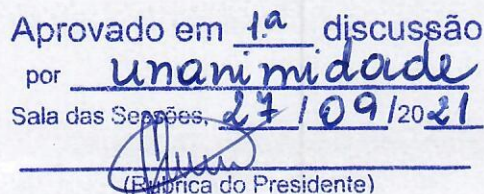 Aprovado em 1.ª discussão
por unanimidade
Sala das Sessões, 27 / 09 /2021
(Rubrica do Presidente)